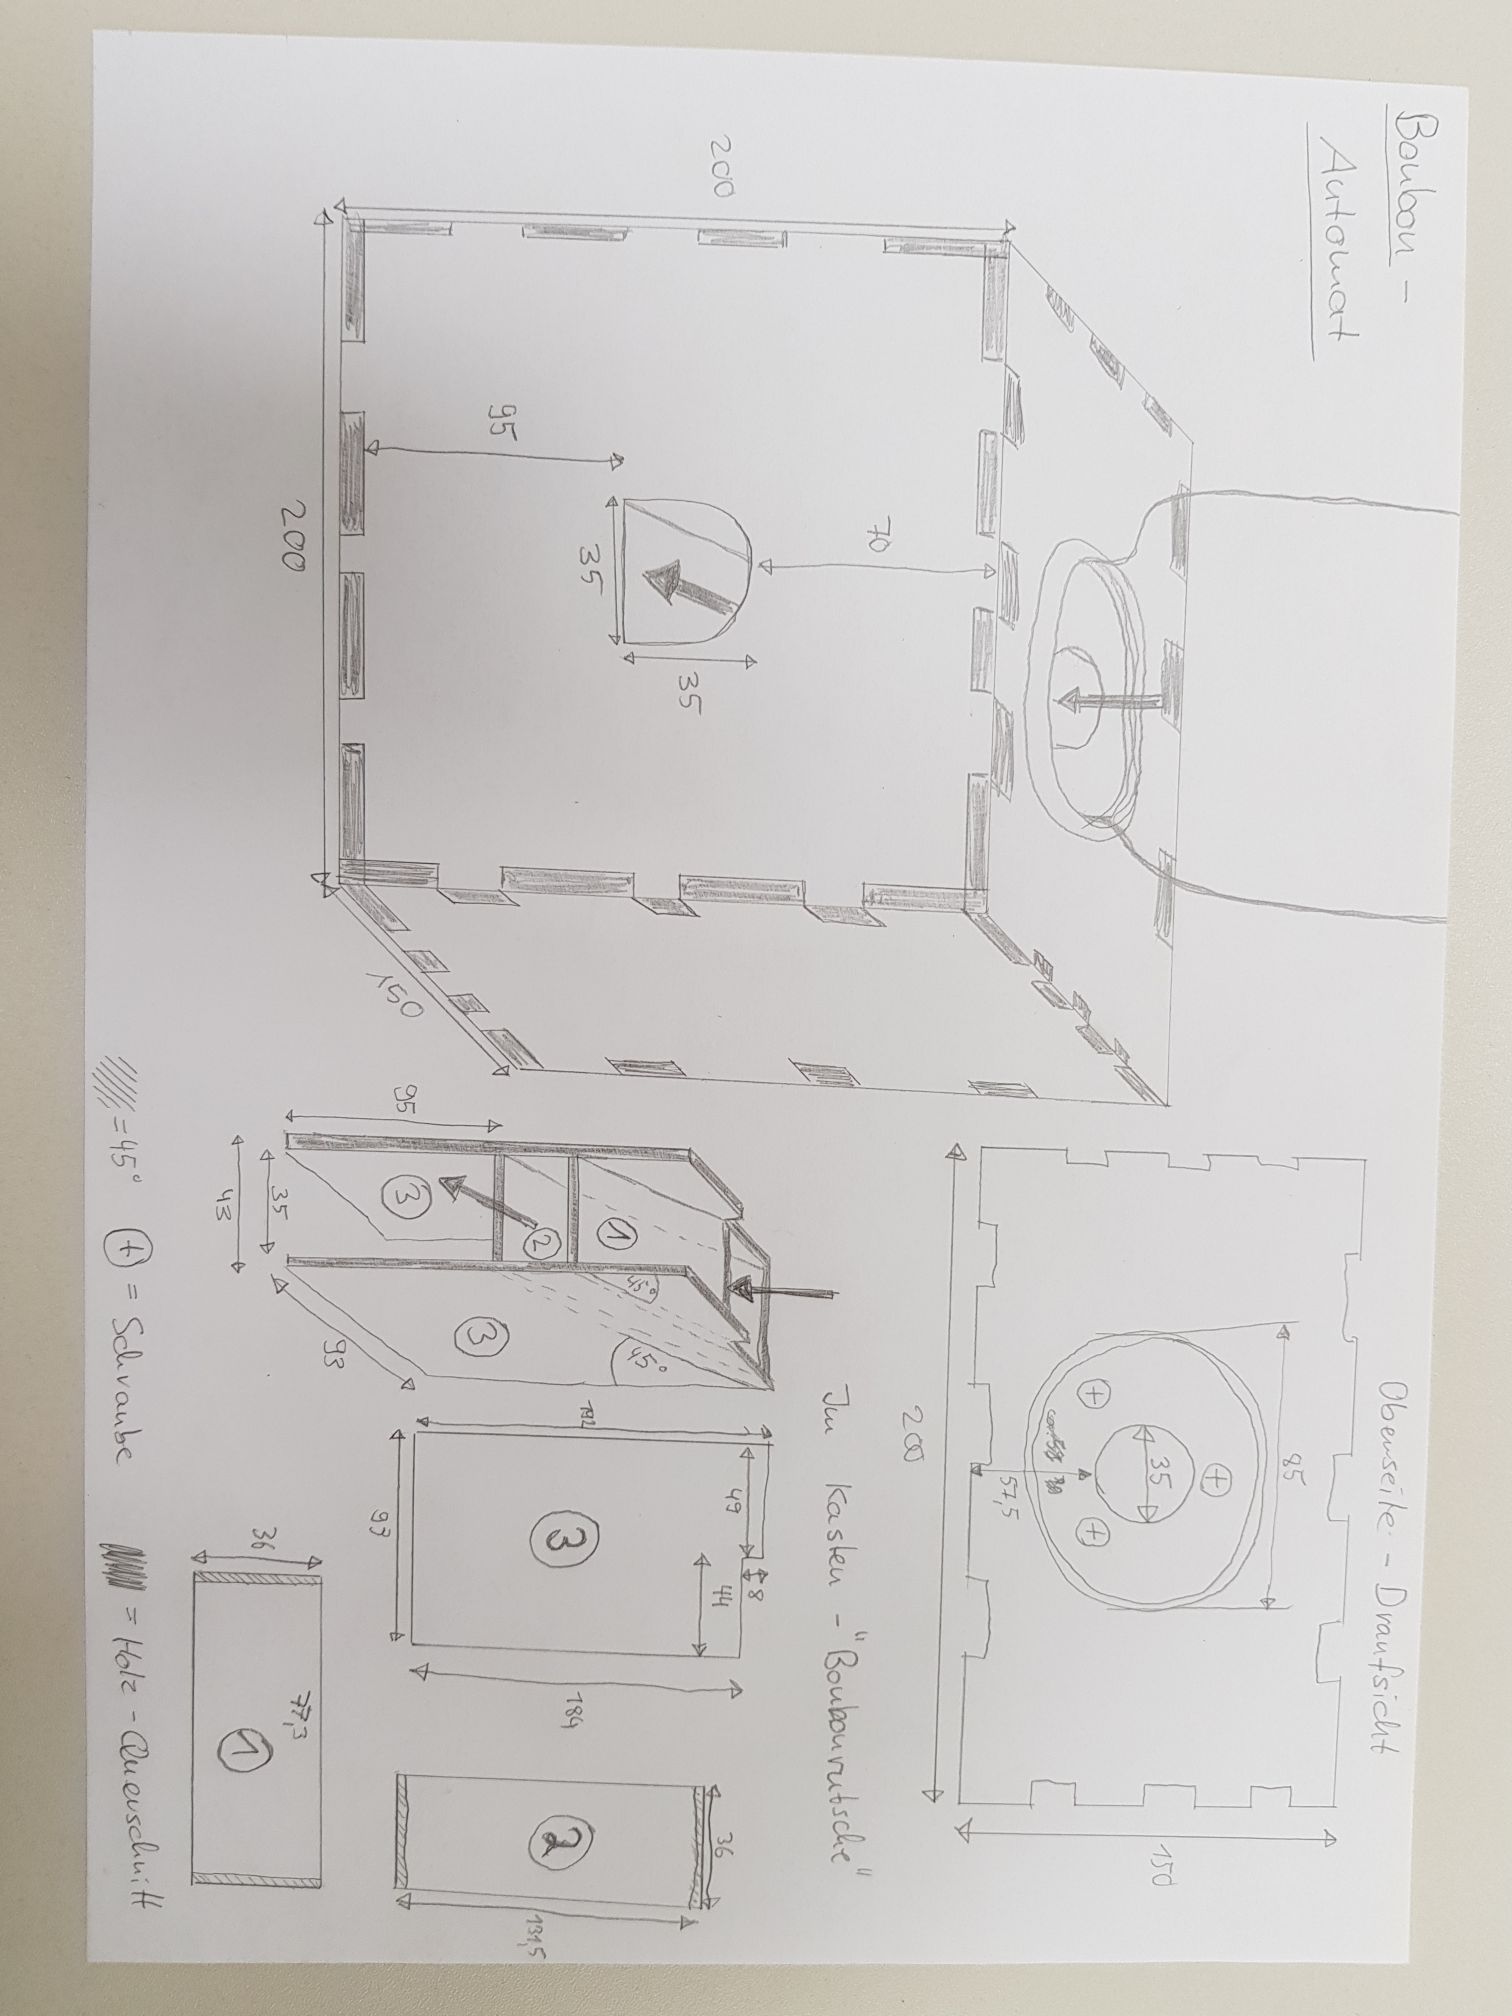 Bonbon -
Automat
200
200
95
35
35
70
150
Oberseite - Draufsicht
85
35
57,5
200
150
Im Kasten - "Bonbonrutsche"
95
35
43
93
45°
45°
1
2
3
3
192
49
8
44
93
184
3
36
131,5
2
36
77,3
1
= 45°
+ = Schraube
= Holz - Querschnitt